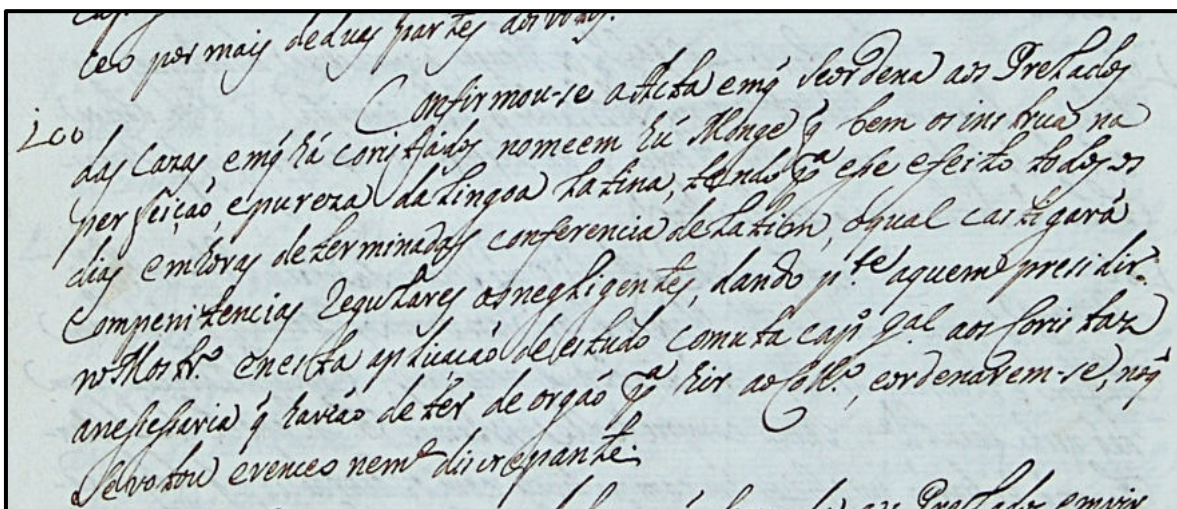 ceo por mais de duas partes dos votos.
Confirmou-se a Acta em q̃ se ordena aos Prelados
200 das Cazas, em q̃ há coristados, nomeem hũ Monge q̃ bem os instrua na
perfeição, e pureza da Lingoa Latina, tendo pª esse efeito todos os
dias em horas determinadas conferencia de Latim, o qual castigará
com penitencias Regulares os negligentes, dando p.te a quem presidir
no Mostrº. e nesta aplicação de estudo comuta capº. g.al aos Coristas
a nessessaria q̃ havião de ter de orgão pª hir ao Collº., e ordenarem-se, no q̃
se votou e venceo nem.e discrepante.
Prelados